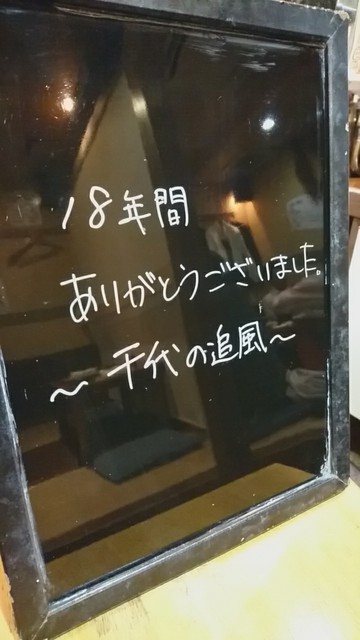 18年間
ありがとうございました。
〜千代の追風〜